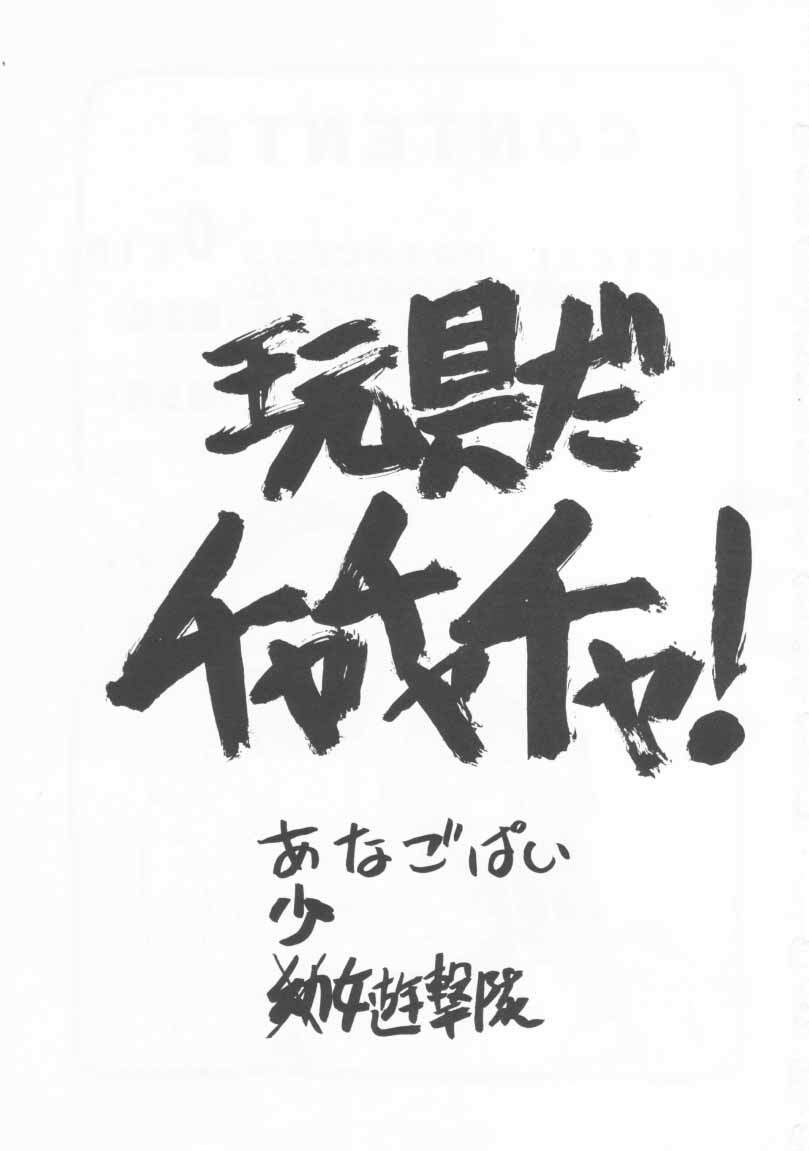 玩具だ
チャチャチャ!
あなごぱい
少
幼女遊撃隊